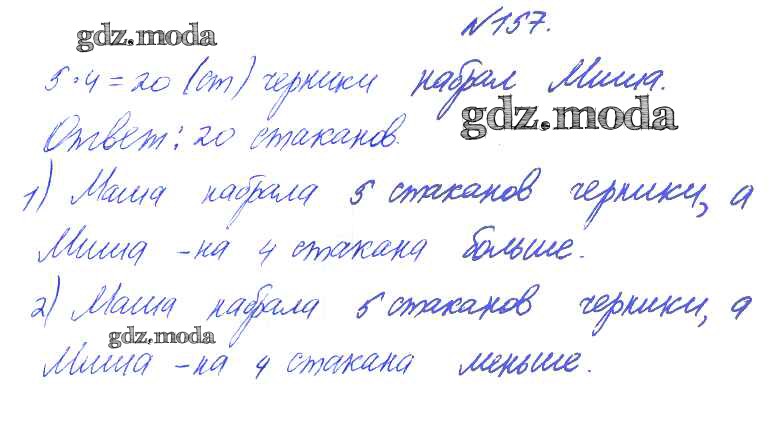 №157.
gdz.moda
5·4=20 (ст) черники набрал Миша.
gdz.moda
Ответ: 20 стаканов.
1) Маша набрала 5 стаканов черники, а
Миша - на 4 стакана больше.
2) Маша набрала 5 стаканов черники, а
gdz.moda
Миша - на 4 стакана меньше.